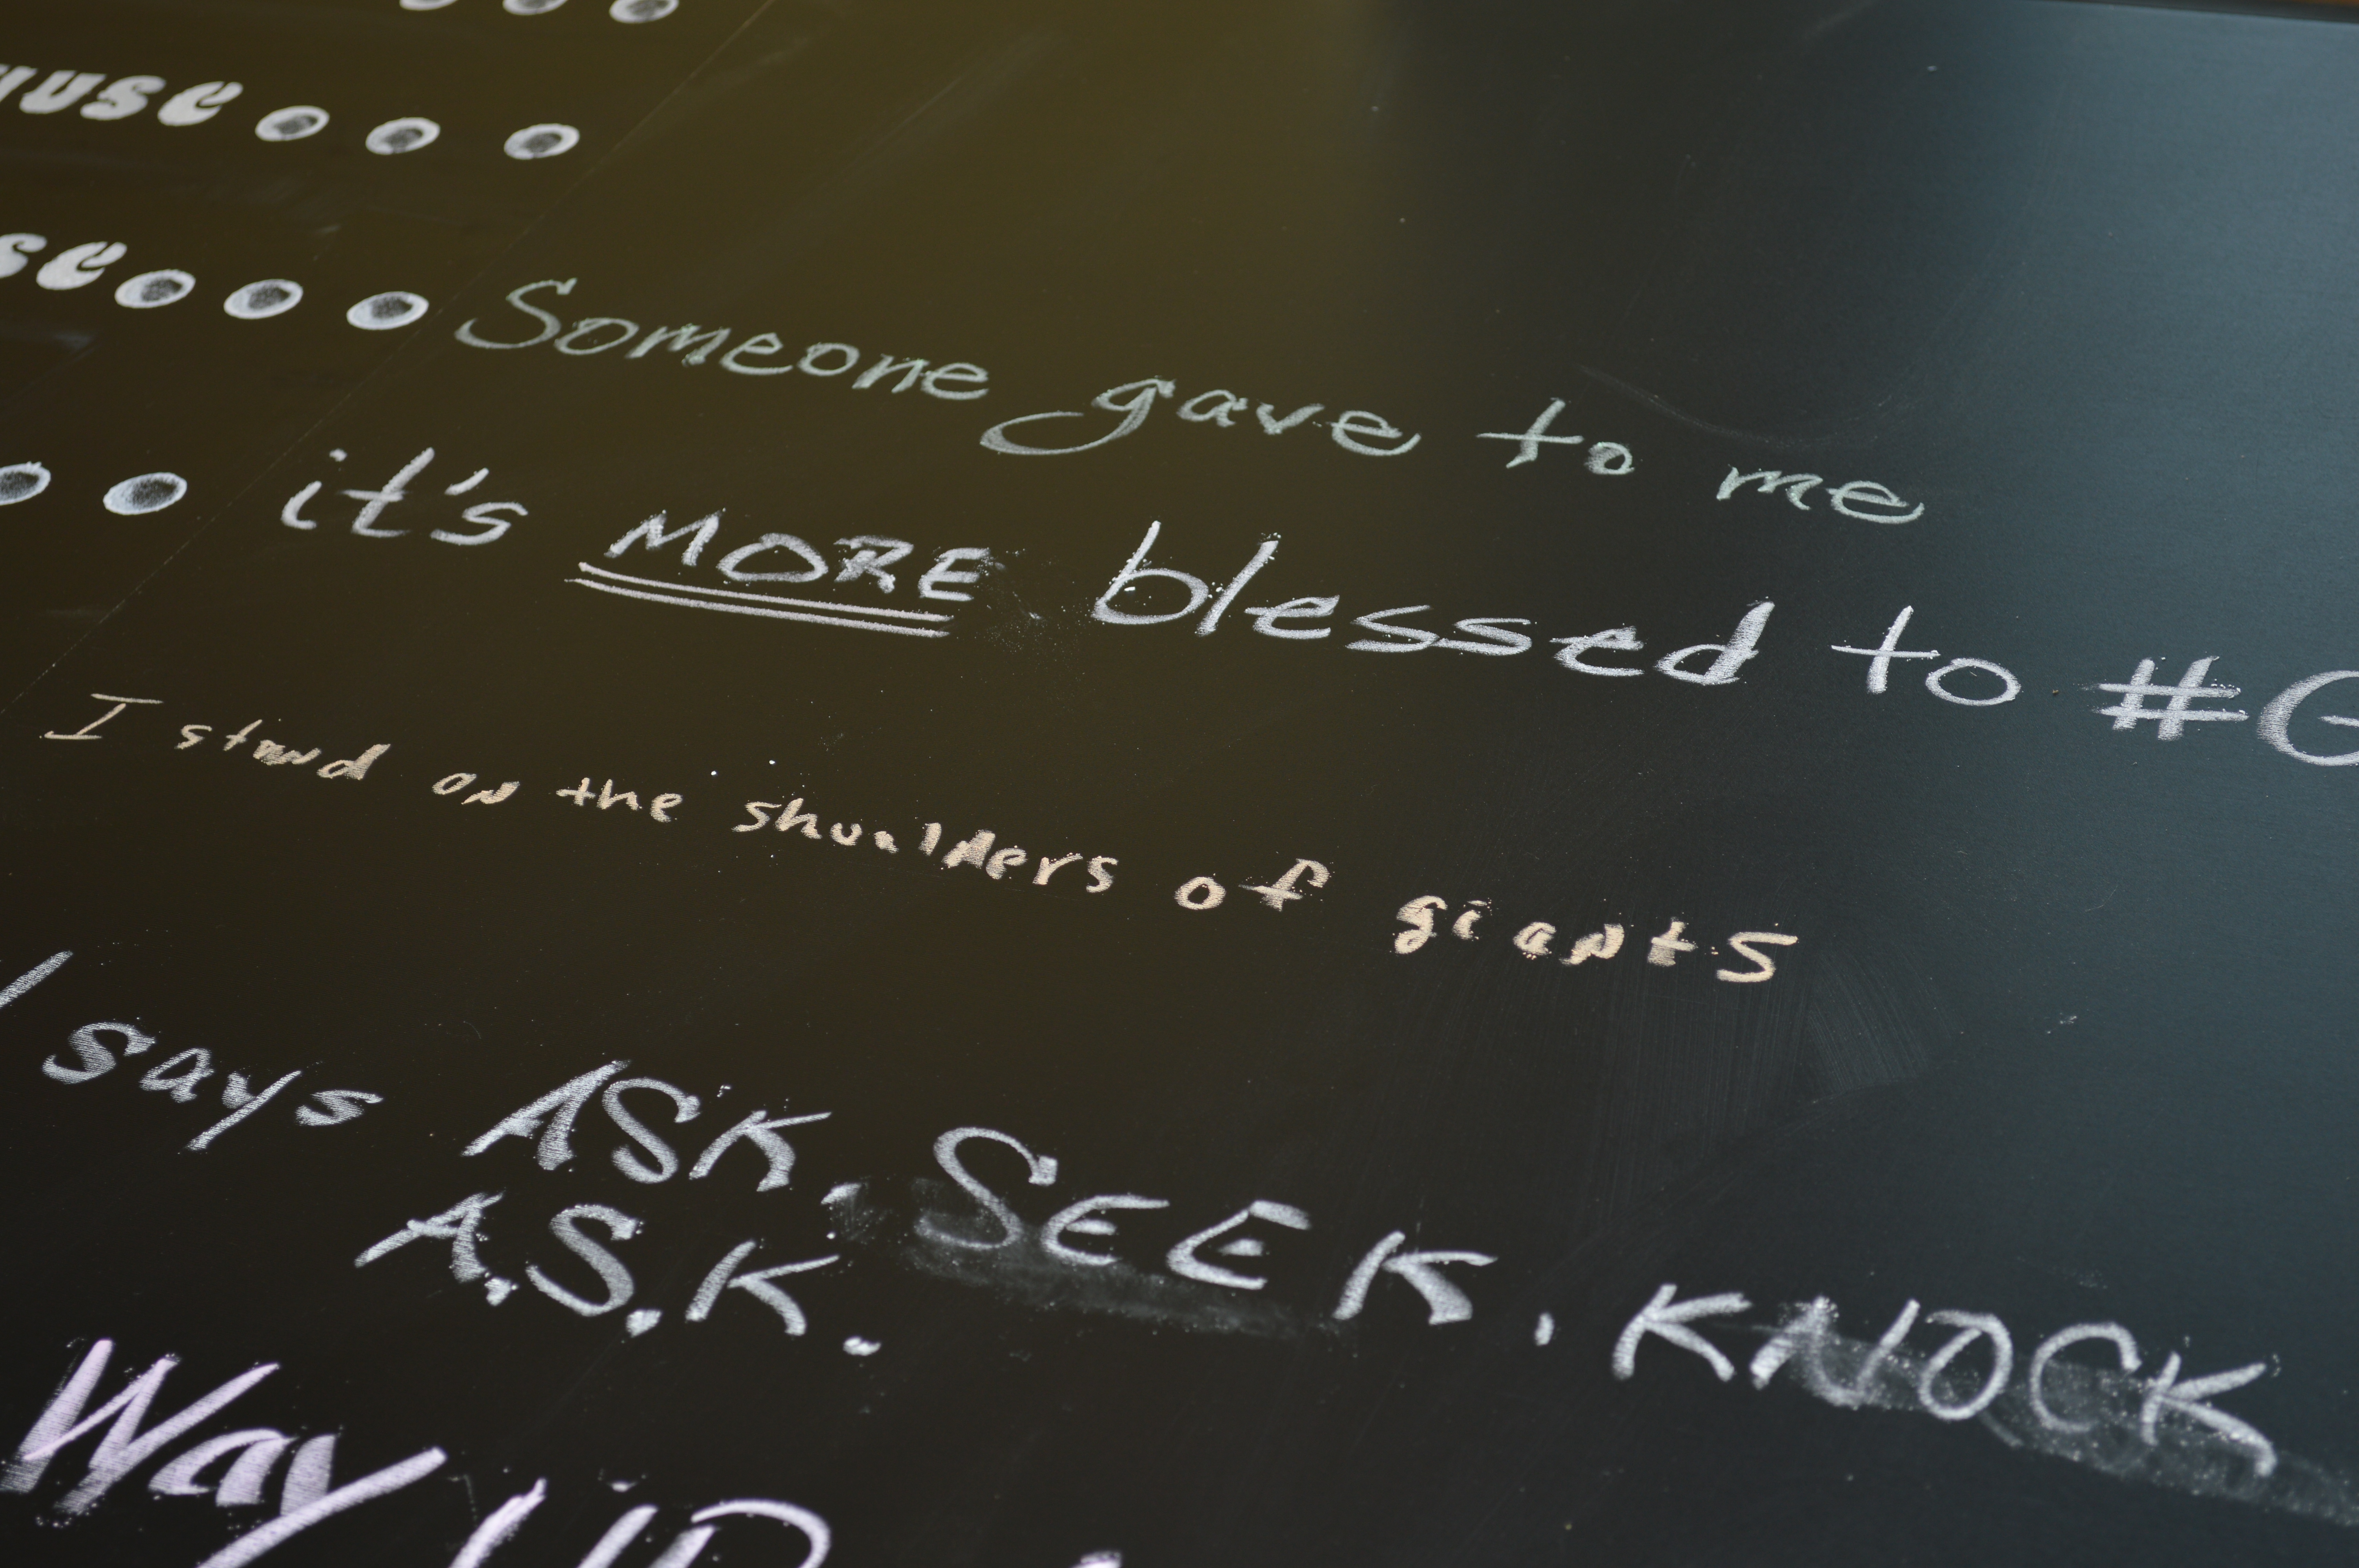 Someone gave to me
it's MORE blessed to
I stand on the shoulders of giants
says ASK, SEEK, KNOCK
A.S.K.
Way UP